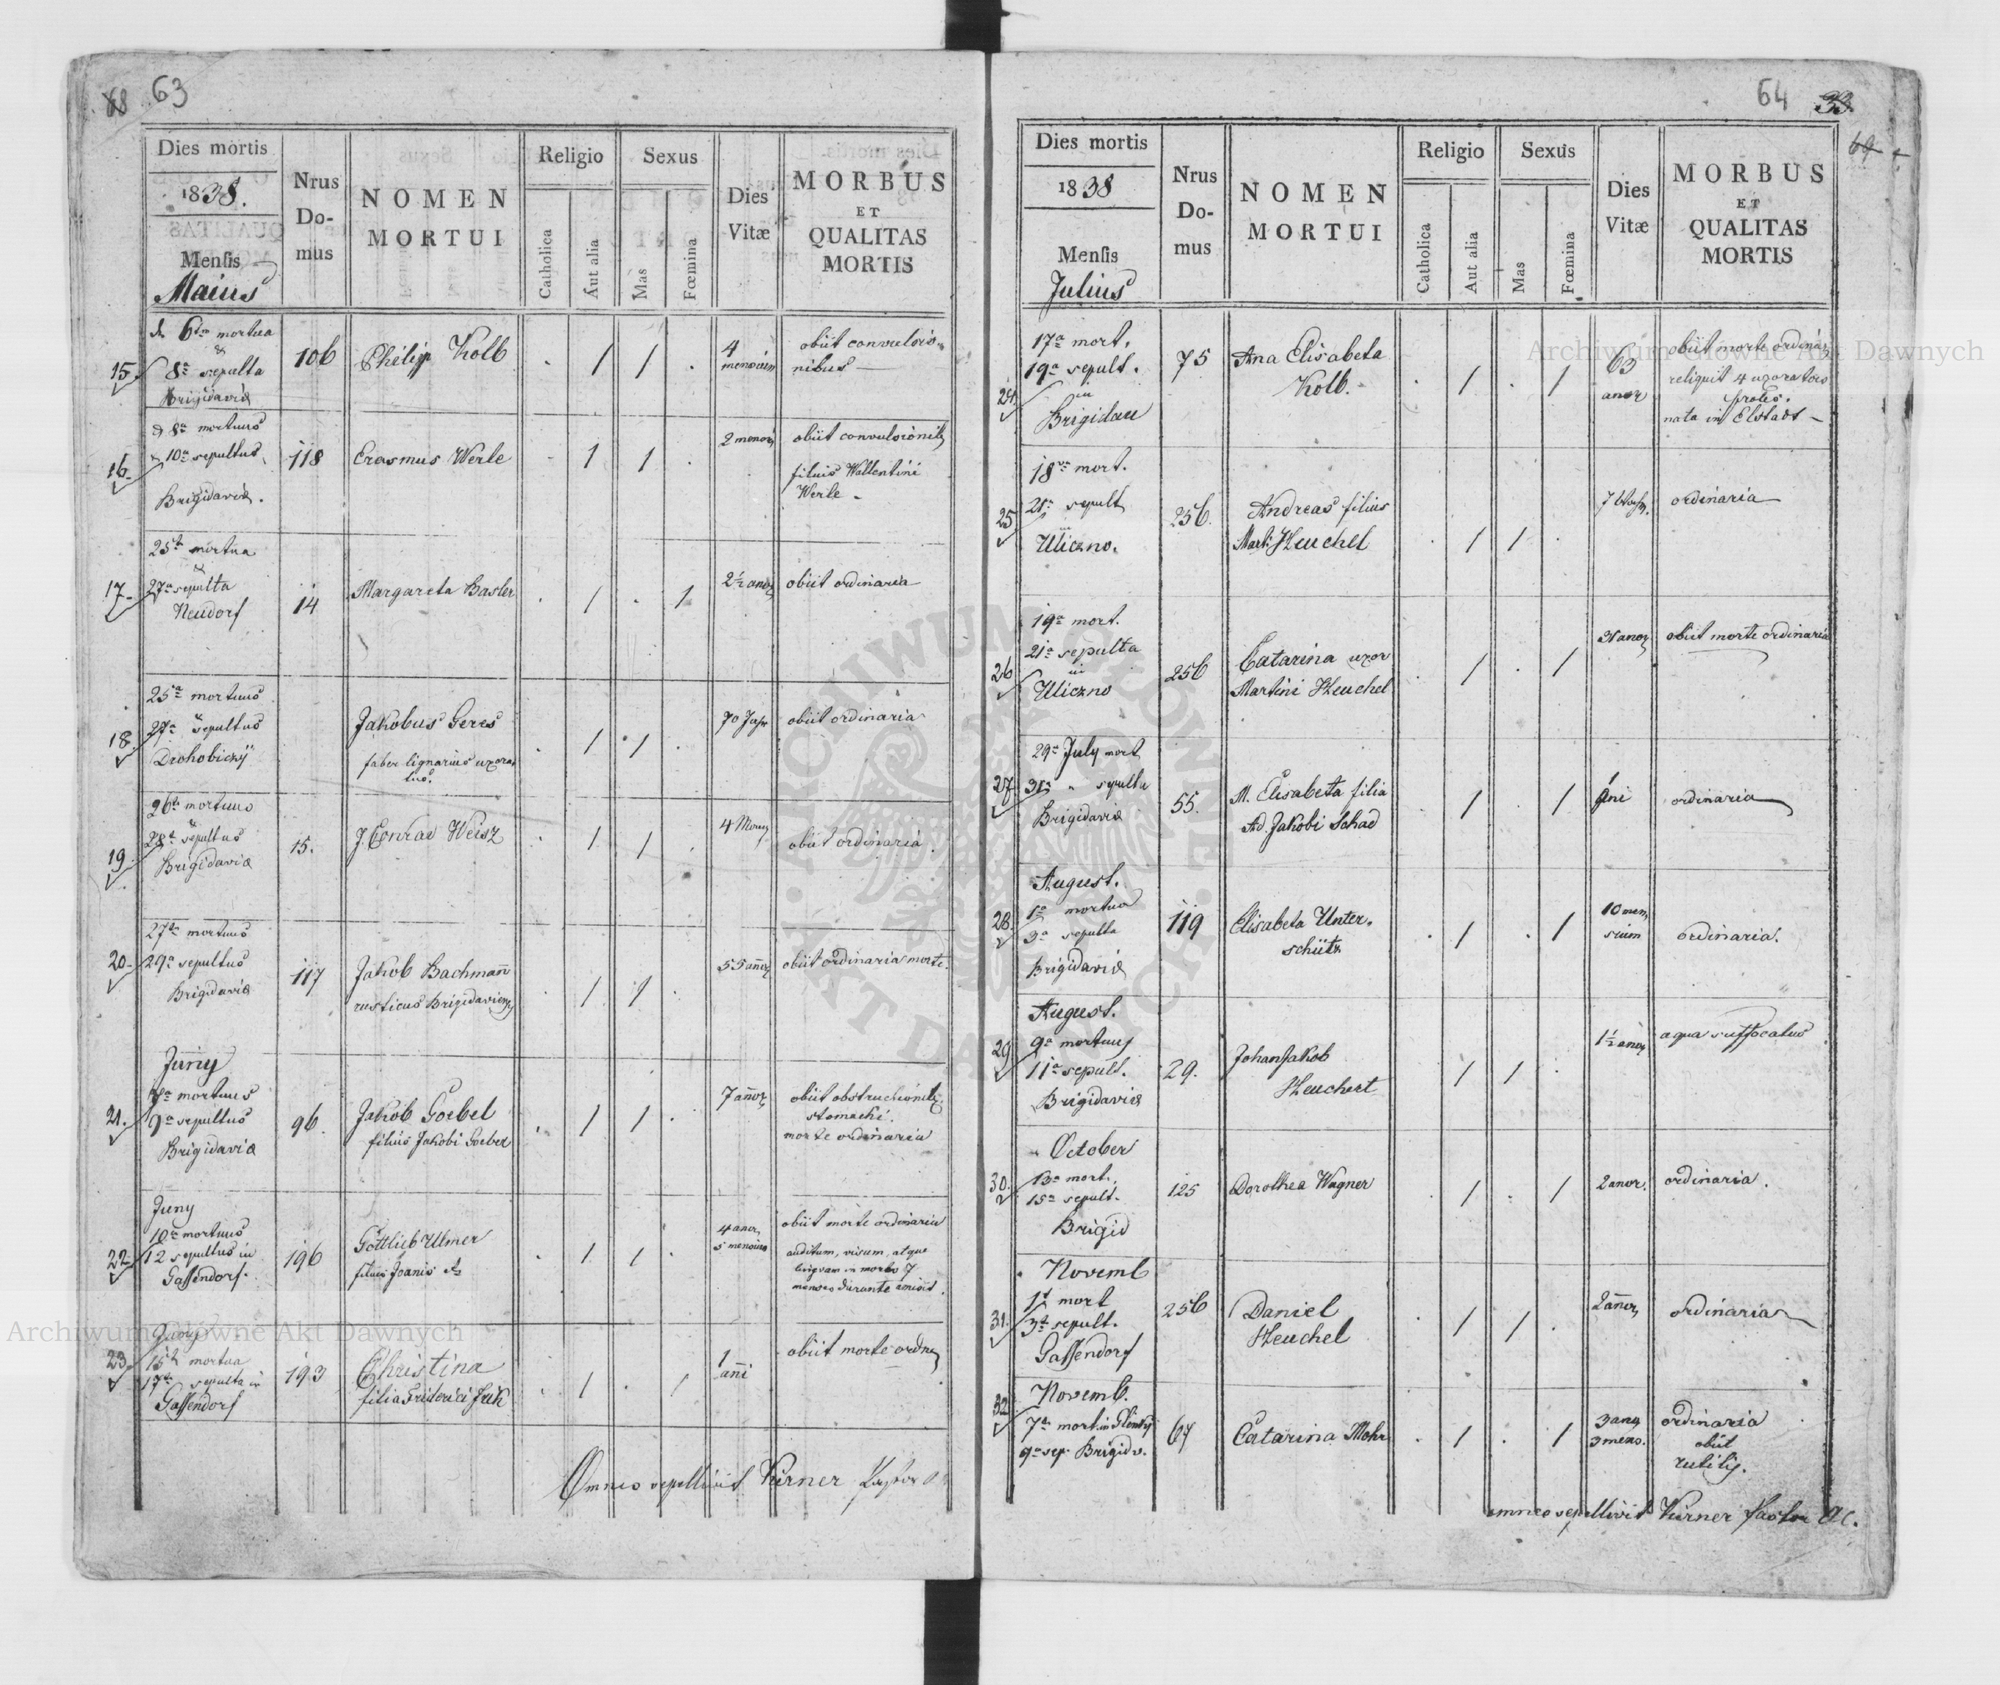 63
Dies mortis
1838.
Mensis
Maius
Nrus
Do-
mus
NOMEN
MORTUI
Religio
Catholica
Aut alia
Sexus
Mas
Fœmina
Dies
Vitæ
MORBUS
ET
QUALITAS
MORTIS
15
6ta mortua
&
8a sepulta
Brigidaviæ
106
Philip Kolb
4
mensium
obiit convulsio-
nibus
16
8a mortuus
10a sepultus
Brigidaviæ.
118
Erasmus Werle
2
obiit
filius Wallentini
Werle
17
25ta mortua
&
27a sepulta
Neudorf
14
Margareta Basler
2½
obiit ordinaria
18
25a mortuus
&
27a sepultus
70 Jahr
Jakobus Geres
faber lignarius uxora-
tus.
obiit ordinaria
19
26ta mortuus
&
28a sepultus
Brigidaviæ
15.
J. Conrad Weisz
4
obiit ordinaria
20
27ta mortuus
29a sepultus
Brigidaviæ
117
Jakob Bachmañ
rusticus
55
obiit ordinaria morte.
21.
Juny
mortuus
9a sepultus
Brigidaviæ
96
Jakob Goebel
filius Jakobi Goebel
7
obiit
stomachi
morte ordinaria
22
Juny
10a mortuus
12 sepultus in
Gassendorf.
196
Gottlieb Ulmer
filius Joanis
4
5
obiit morte ordinaria
auditum, visum, atque
linguam in morbo 7
menses durante amisit.
23
Juny
15ta mortua
17ta sepulta in
Gassendorf
193
Christina
filia Friderici
1
añi
obiit morte
Omnes sepellivit Kirner Pastor
64
33.
Dies mortis
1838
Mensis
Julius
Nrus
Do-
mus
NOMEN
MORTUI
Religio
Catholica
Aut alia
Sexus
Mas
Fœmina
Dies
Vitæ
MORBUS
ET
QUALITAS
MORTIS
24
17a mort.
19a sepult.
in
Brigidau
75
Ana Elisabeta
Kolb.
63
obiit morte
reliquit 4
proles.
nata in Elstadt
25
18va mort.
21a sepult
in
Uliczno.
256.
Andreas filius
Mart. Heuchel
7
ordinaria
26
19a mort.
21a sepulta
in
Uliczno
256
Catarina uxor
Martini Heuchel
obiit morte ordinaria
27
29a July mort
31a " sepulta
Brigidaviæ
55.
M. Elisabeta filia
Ad. Jakobi Schad
ordinaria
28.
August.
1a mortua
3a sepulta
Brigidaviæ
119
Elisabeta Unter-
schütz
10 men
sium
ordinaria.
29
August.
9a mortuus
11a sepult.
Brigidaviæ
29.
Johan Jakob
Heuchert
1½
aqua suffocatus
30.
October
13a mort.
15a sepult.
Brigid
125
Dorothea Wagner
2
ordinaria.
31.
Novemb
1t mort
3a sepult.
Gassendorf
256
Daniel
Heuchel
2
ordinaria
32
Novemb.
7a mort in
9a sep. Brigidv.
67
Catarina Mohr
3
3 mens.
ordinaria
obiit
omnes sepellivit Kirner Pastor
Archiwum Główne Akt Dawnych
Archiwum Główne Akt Dawnych
ARCHIWUM GŁÓWNE AKT DAWNYCH